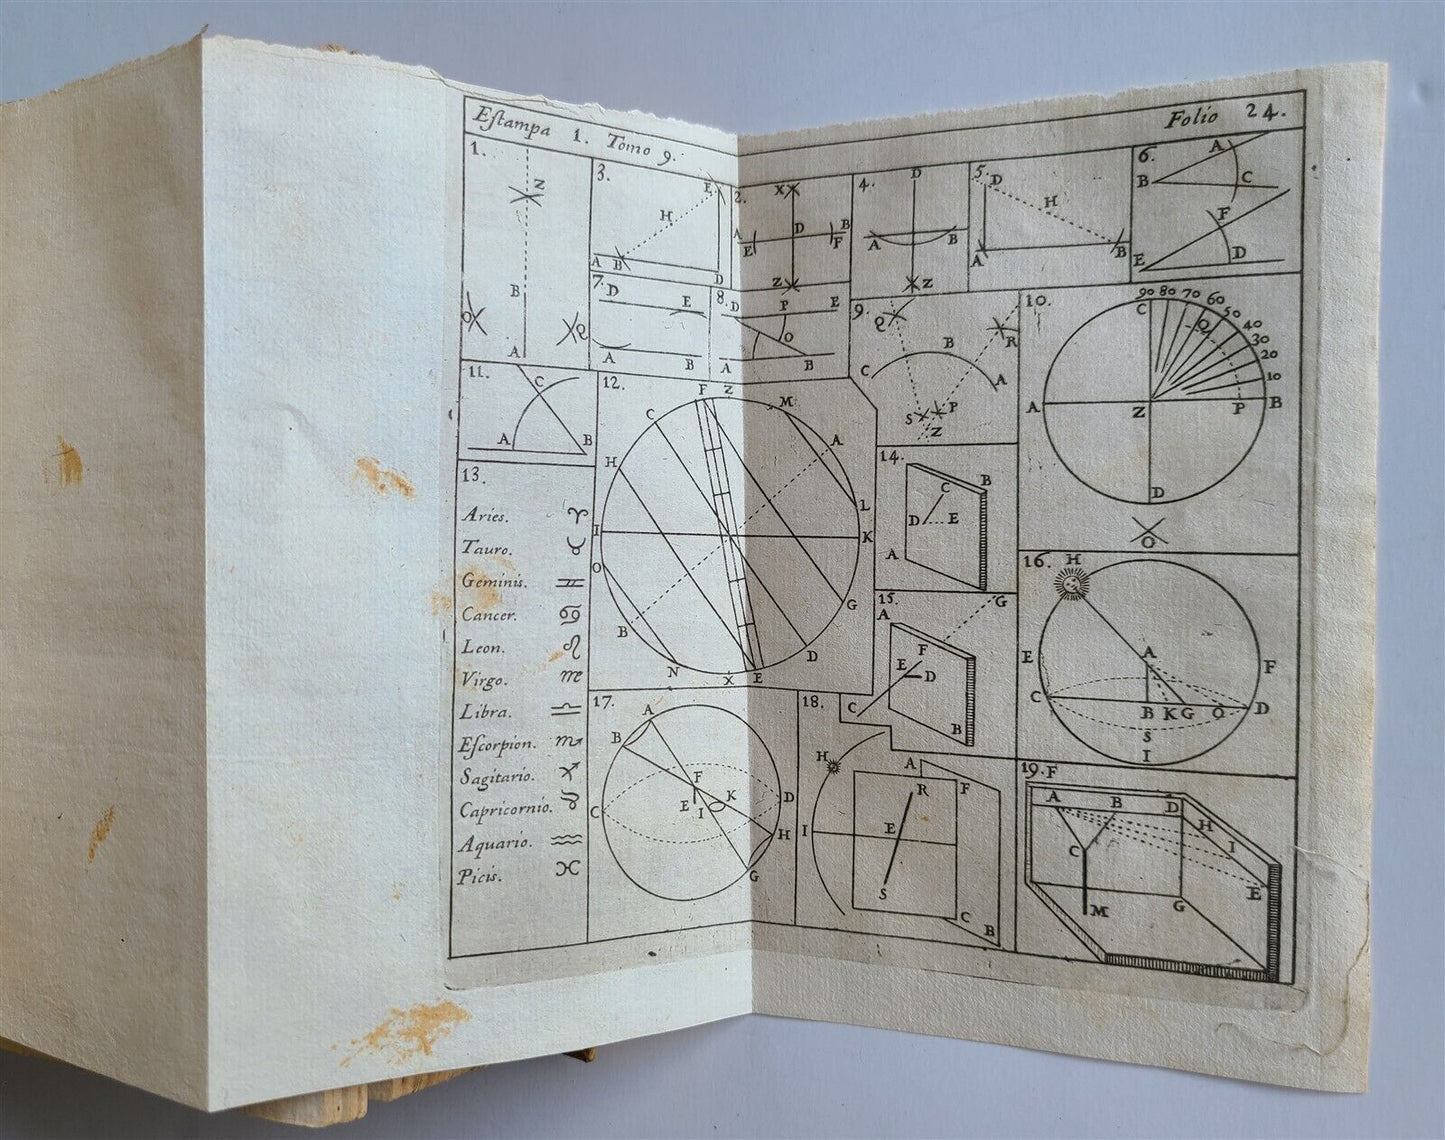 Eſtampa 1. Tomo 9. Folio 24.
1.
Z
B
Q
Q
A
3.
E
H
A B
D
2.
X
A
E
D
B
F
Z
4.
D
A
B
Z
5.
D
H
A
B
6.
A
B
C
F
E
D
7.
D
E
A
B
8.
D
P
E
O
A
B
9.
Q
B
R
C
A
S
P
Z
10.
90 80 70 60 50 40 30 20 10
C
Q
A
Z
P
B
D
O
11.
C
A
B
12.
F Z
M
C
A
H
L
I
K
O
G
B
D
N
X E
13.
Aries. ♈
Tauro. ♉
Geminis. ♊
Cancer. ♋
Leon. ♌
Virgo. ♍
Libra. ♎
Eſcorpion. ♏
Sagitario. ♐
Capricornio. ♑
Aquario. ♒
Picis. ♓
14.
C
B
D
E
A
15.
G
A
F
E
D
C
B
16.
H
A
E
F
C
B K G O D
S
I
17.
A
B
F
K
D
C
E
I
H
G
18.
H
A
R
F
I
E
S
C
B
19.
F
A
B
D
H
C
I
E
M
G